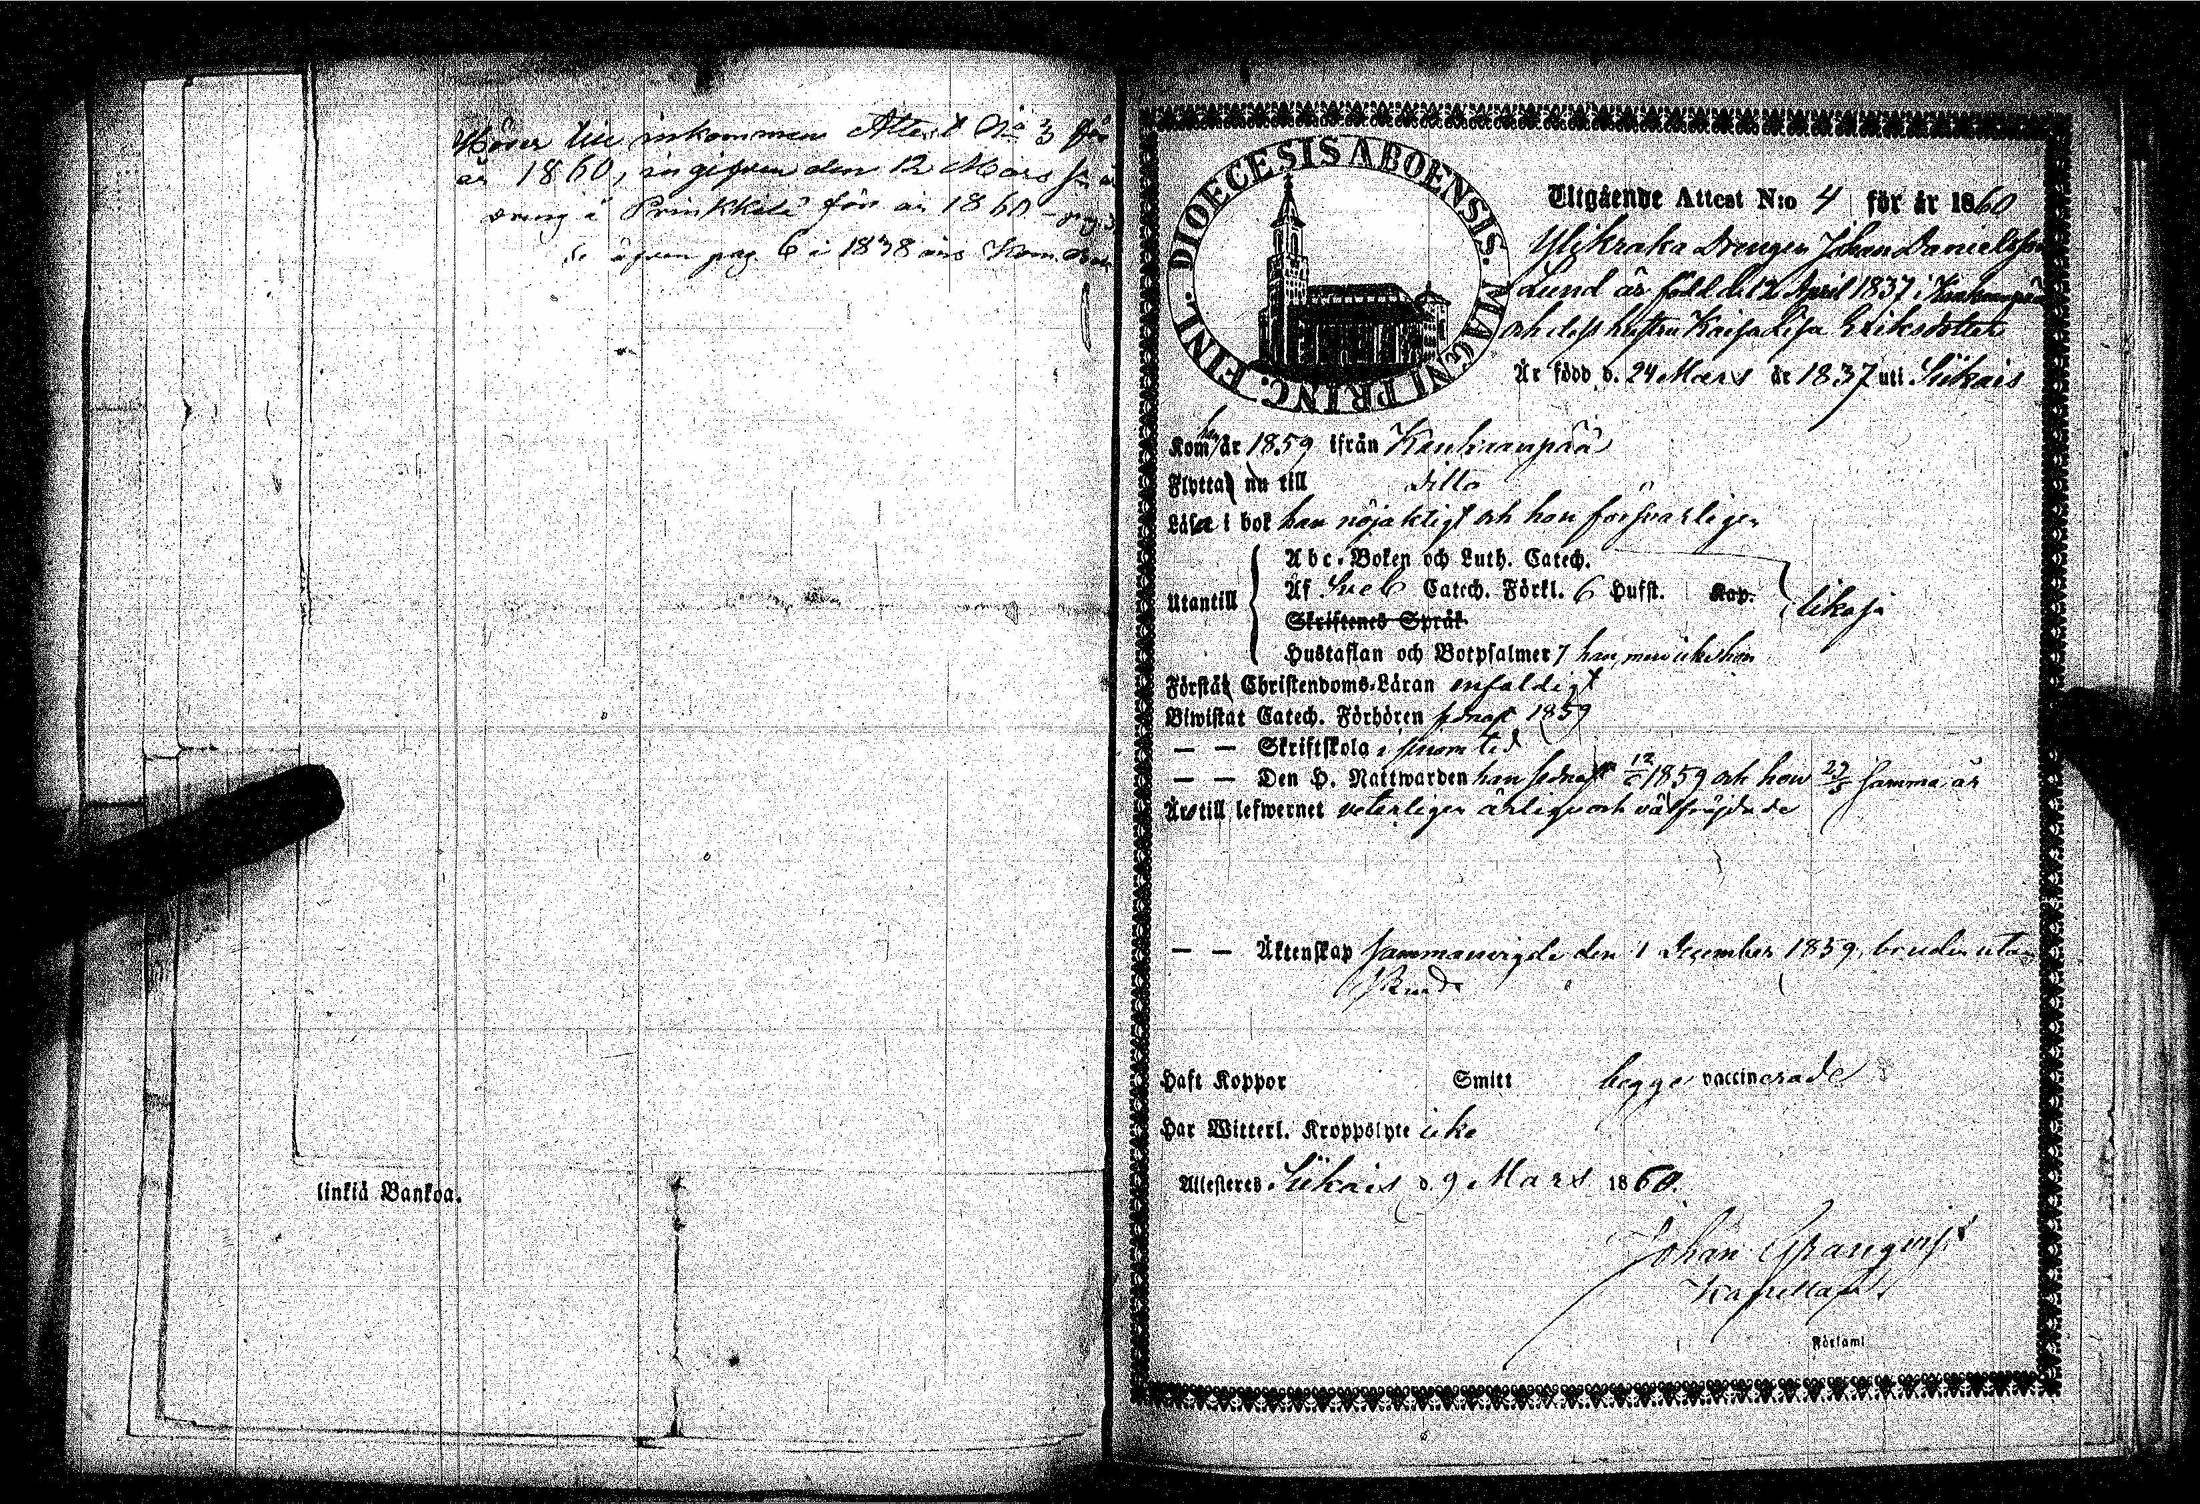 Hörer till inkommen Attest No 3 för
år 1860, ingifven den 12 Mars
i Prinkkala för år 1860 - pag 3
Se äfven pag. 6 i 1838 års Kom. Bok
linkiä Bankoa.
DIOECESIS ABOENSIS. MAGNI PRINC. FINL.
Utgående Attest N:o 4 för år 1860
Ylikraka Drengen Johan Danielsson
Lund är född d. 12 April 1837 i Kankaanpää
och dess hustru Kaisa Lisa Eriksdotter
Är född d. 24 Mars år 1837 uti Siikais
Kom han år 1859 ifrån Kankaanpää
Flytta nu till ditto
Läser i bok han nöjaktigt och hon försvarligen
Abc-Boken och Luth. Catech.
Utantill Af Sveb Catech. Förkl. 6 Hufst. Kap. likaså
Skriftenes Språk
Hustaflan och Botpsalmer 7 han, men icke hon
Förstå Christendoms-Läran enfaldigt
Biwistat Catech. Förhören sednast 1859
— — Skriftskola i sinom tid
— — Den H. Nattwarden han sednast 12/6 1859 och hon 29/5 samma år
Äro till lefwernet veterligen ärliga och välfrejdade
— — Äktenskap sammanvigde den 1 December 1859, bruden utan
Haft Koppor Smitt begge vaccinerade
Har Witterl. Kroppslyte icke
Attesteres Siikais d. 9 Mars 1860.
Johan Granqvist
Kapellan
Förlaml